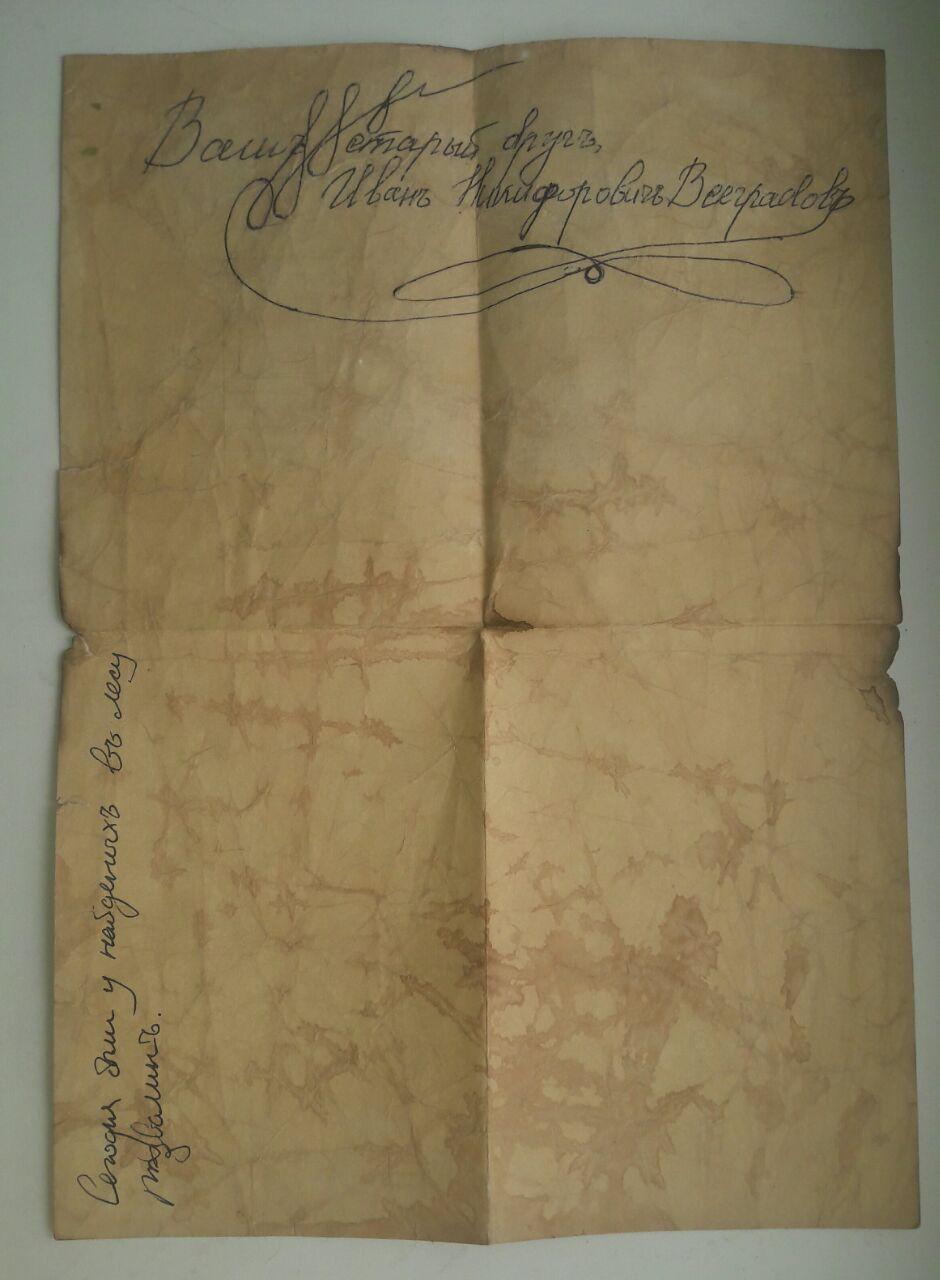 Вашъ старый другъ,
Иванъ Никифоровичъ Всеградовъ
Сегодня дни у найденыхъ въ лесу
развалинъ.